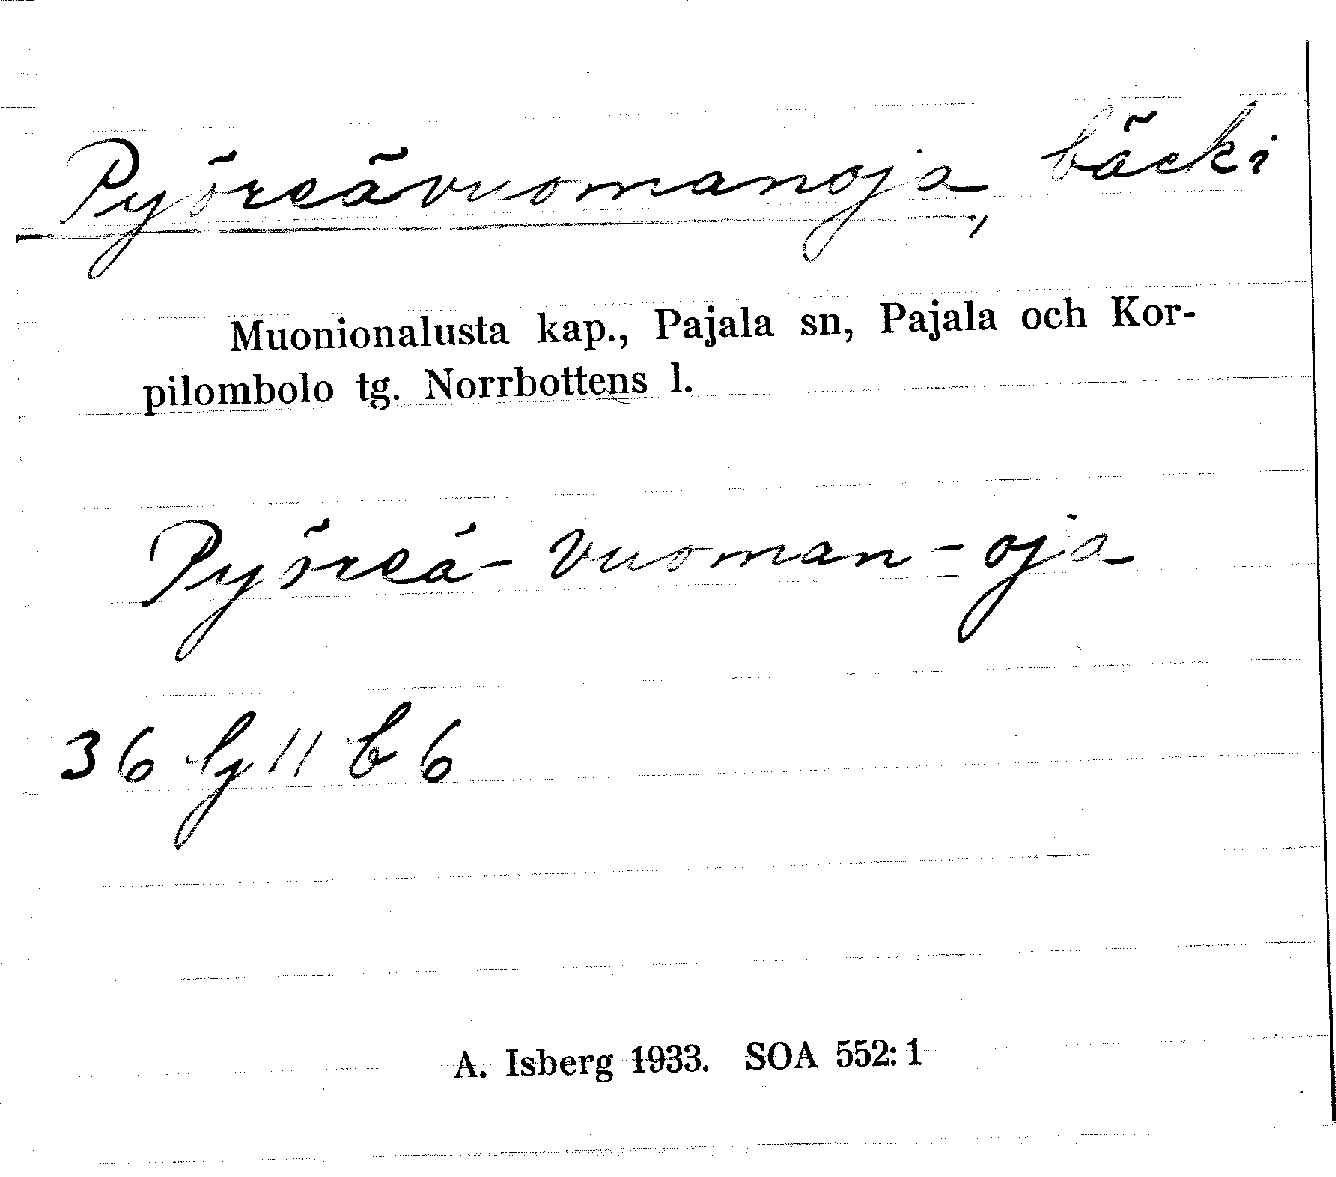 Pyöreävuomanoja, bäck i
Muonionalusta kap., Pajala sn, Pajala och Kor-
pilombolo tg. Norrbottens l.
Pyöreä-vuoman-oja
36 lj 11 b 6
A. Isberg 1933. SOA 552:1